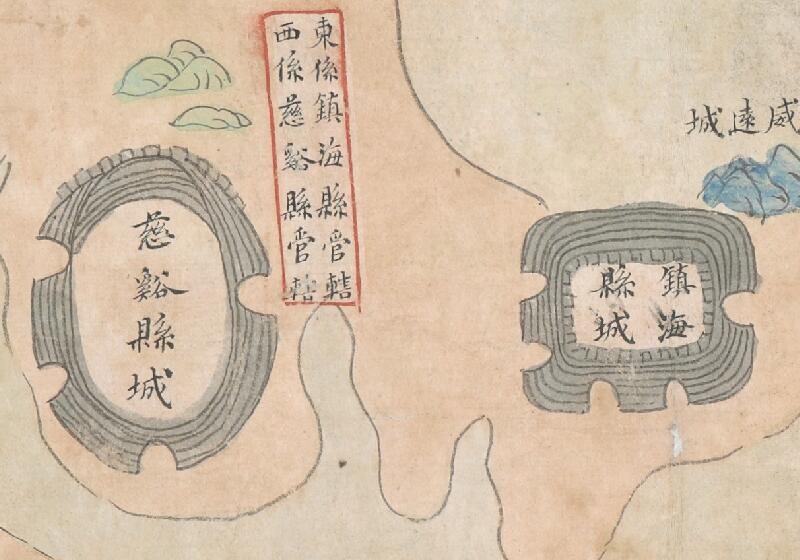 東係鎮海縣管轄
西係慈谿縣管轄
威遠城
慈谿縣城
鎮海
縣城